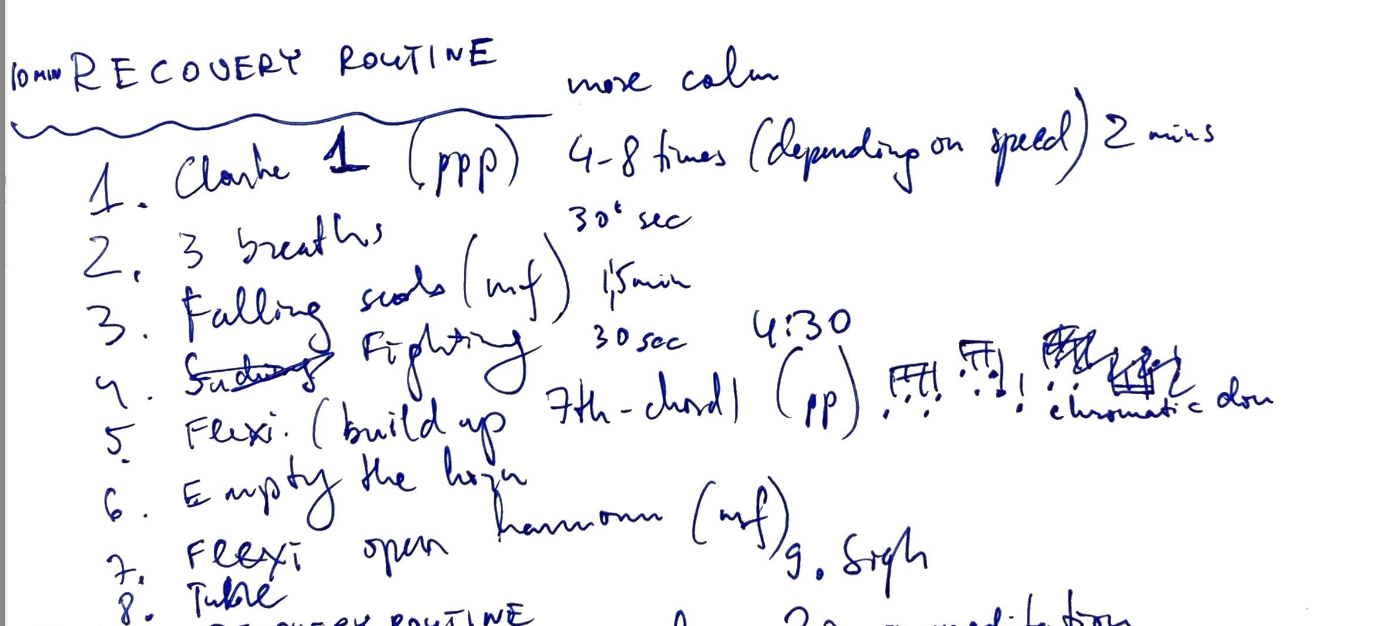 10 MIN RECOVERY ROUTINE
more calm
1. Clarke 1 (ppp) 4-8 times (depending on speed) 2 mins
2. 3 breaths 30' sec
3. Falling scals (mf) 1,5 min
4. Fighting 30 sec 4:30
5. Flexi. (build up 7th-chord) (pp)
chromatic don
6. Empty the horn
7. Flexi open harmonn (mf)
8. Tube
9. Sigh
RECOVERY ROUTINE
meditation